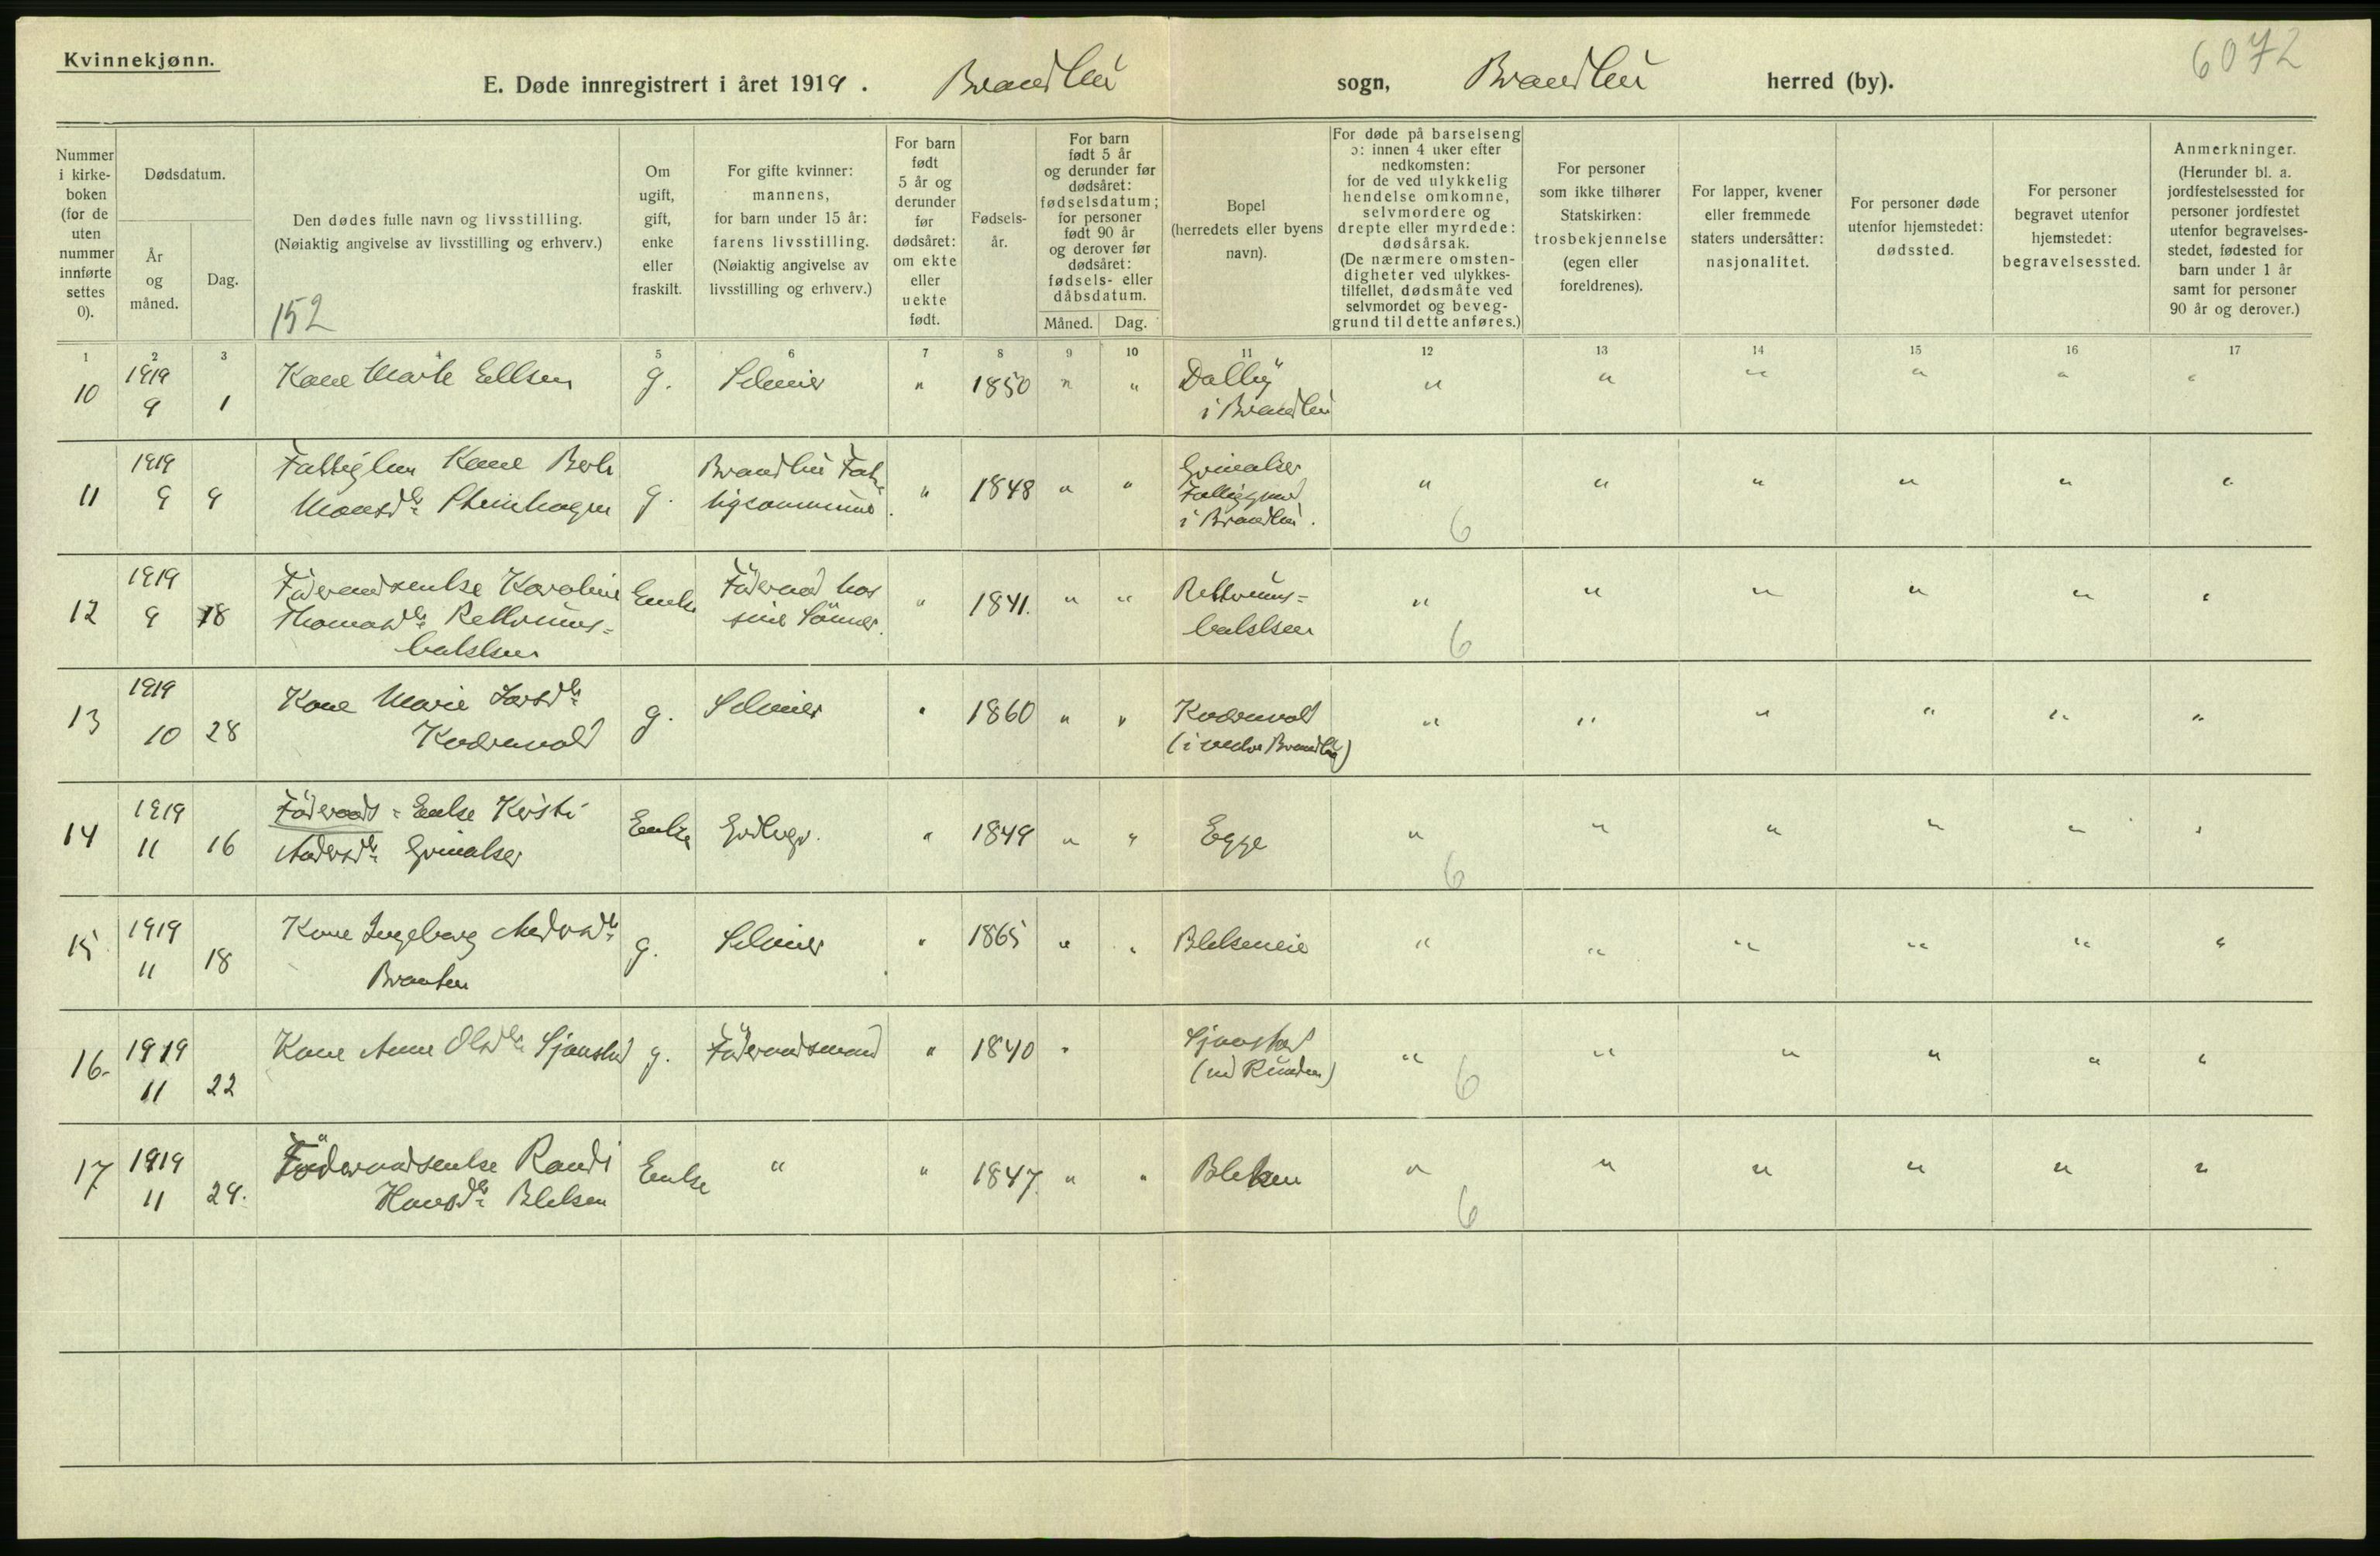 Kvinnekjønn.
6072
E. Døde innregistrert i året 1919. Brandbu sogn, Brandbu herred (by).
Nummer i kirke-boken (for de uten nummer innførte settes 0).
Dødsdatum.
År og måned.
Dag.
Den dødes fulle navn og livsstilling.
(Nøiaktig angivelse av livsstilling og erhverv.)
152
Om ugift, gift, enke eller fraskilt.
For gifte kvinner: mannens, for barn under 15 år: farens livsstilling. (Nøiaktig angivelse av livsstilling og erhverv.)
For barn født 5 år og derunder før dødsåret: om ekte eller uekte født.
Fødsels-år.
For barn født 5 år og derunder før dødsåret: fødselsdatum; for personer født 90 år og derover før dødsåret: fødsels- eller dåbsdatum.
Måned. Dag.
Bopel (herredets eller byens navn).
For døde på barselseng ɔ: innen 4 uker efter nedkomsten: for de ved ulykkelig hendelse omkomne, selvmordere og drepte eller myrdede: dødsårsak. (De nærmere omsten-digheter ved ulykkes-tilfellet, dødsmåte ved selvmordet og beveg-grund til dette anføres.)
For personer som ikke tilhører Statskirken: trosbekjennelse (egen eller foreldrenes).
For lapper, kvener eller fremmede staters undersåtter: nasjonalitet.
For personer døde utenfor hjemstedet: dødssted.
For personer begravet utenfor hjemstedet: begravelsessted.
Anmerkninger. (Herunder bl. a. jordfestelsessted for personer jordfestet utenfor begravelses-stedet, fødested for barn under 1 år samt for personer 90 år og derover.)
1 2 3 4 5 6 7 8 9 10 11 12 13 14 15 16 17
10 1919 9 1 Kone Marte g. Selveier " 1850 " " i Brandbu " " " " " "
11 1919 9 9 Kone g. Brandbu Fat-
tigcommune " 1848 " " i Brandbu. " 6 " " " " "
12 1919 9 18 Føderaadsenke Karoline
Thomasdtr Enke Føderaad hos
sine Sønner. " 1841. " " " 6 " " " " "
13 1919 10 28 Kone Marie Larsdtr
g. Selveier " 1860 " " " " " " " "
14 1919 11 16 Føderaads-Enke Kersti
Andersdtr Grinaker Enke Grdbrgr. " 1849 " " Egge " 6 " " " " "
15 1919 11 18 Kone Ingeborg Andersdtr
Braaten g. Selveier " 1865 " " Blekeneie " " " " " "
16. 1919 11 22 Kone Anne Olsdtr Sjaastad g. Føderaadsmand " 1840 " Sjaastad
" 6 " " " " "
17 1919 11 29. Føderaadsenke Randi
Hansdtr Bleken Enke " " 1847. " " Bleken " 6 " " " " "